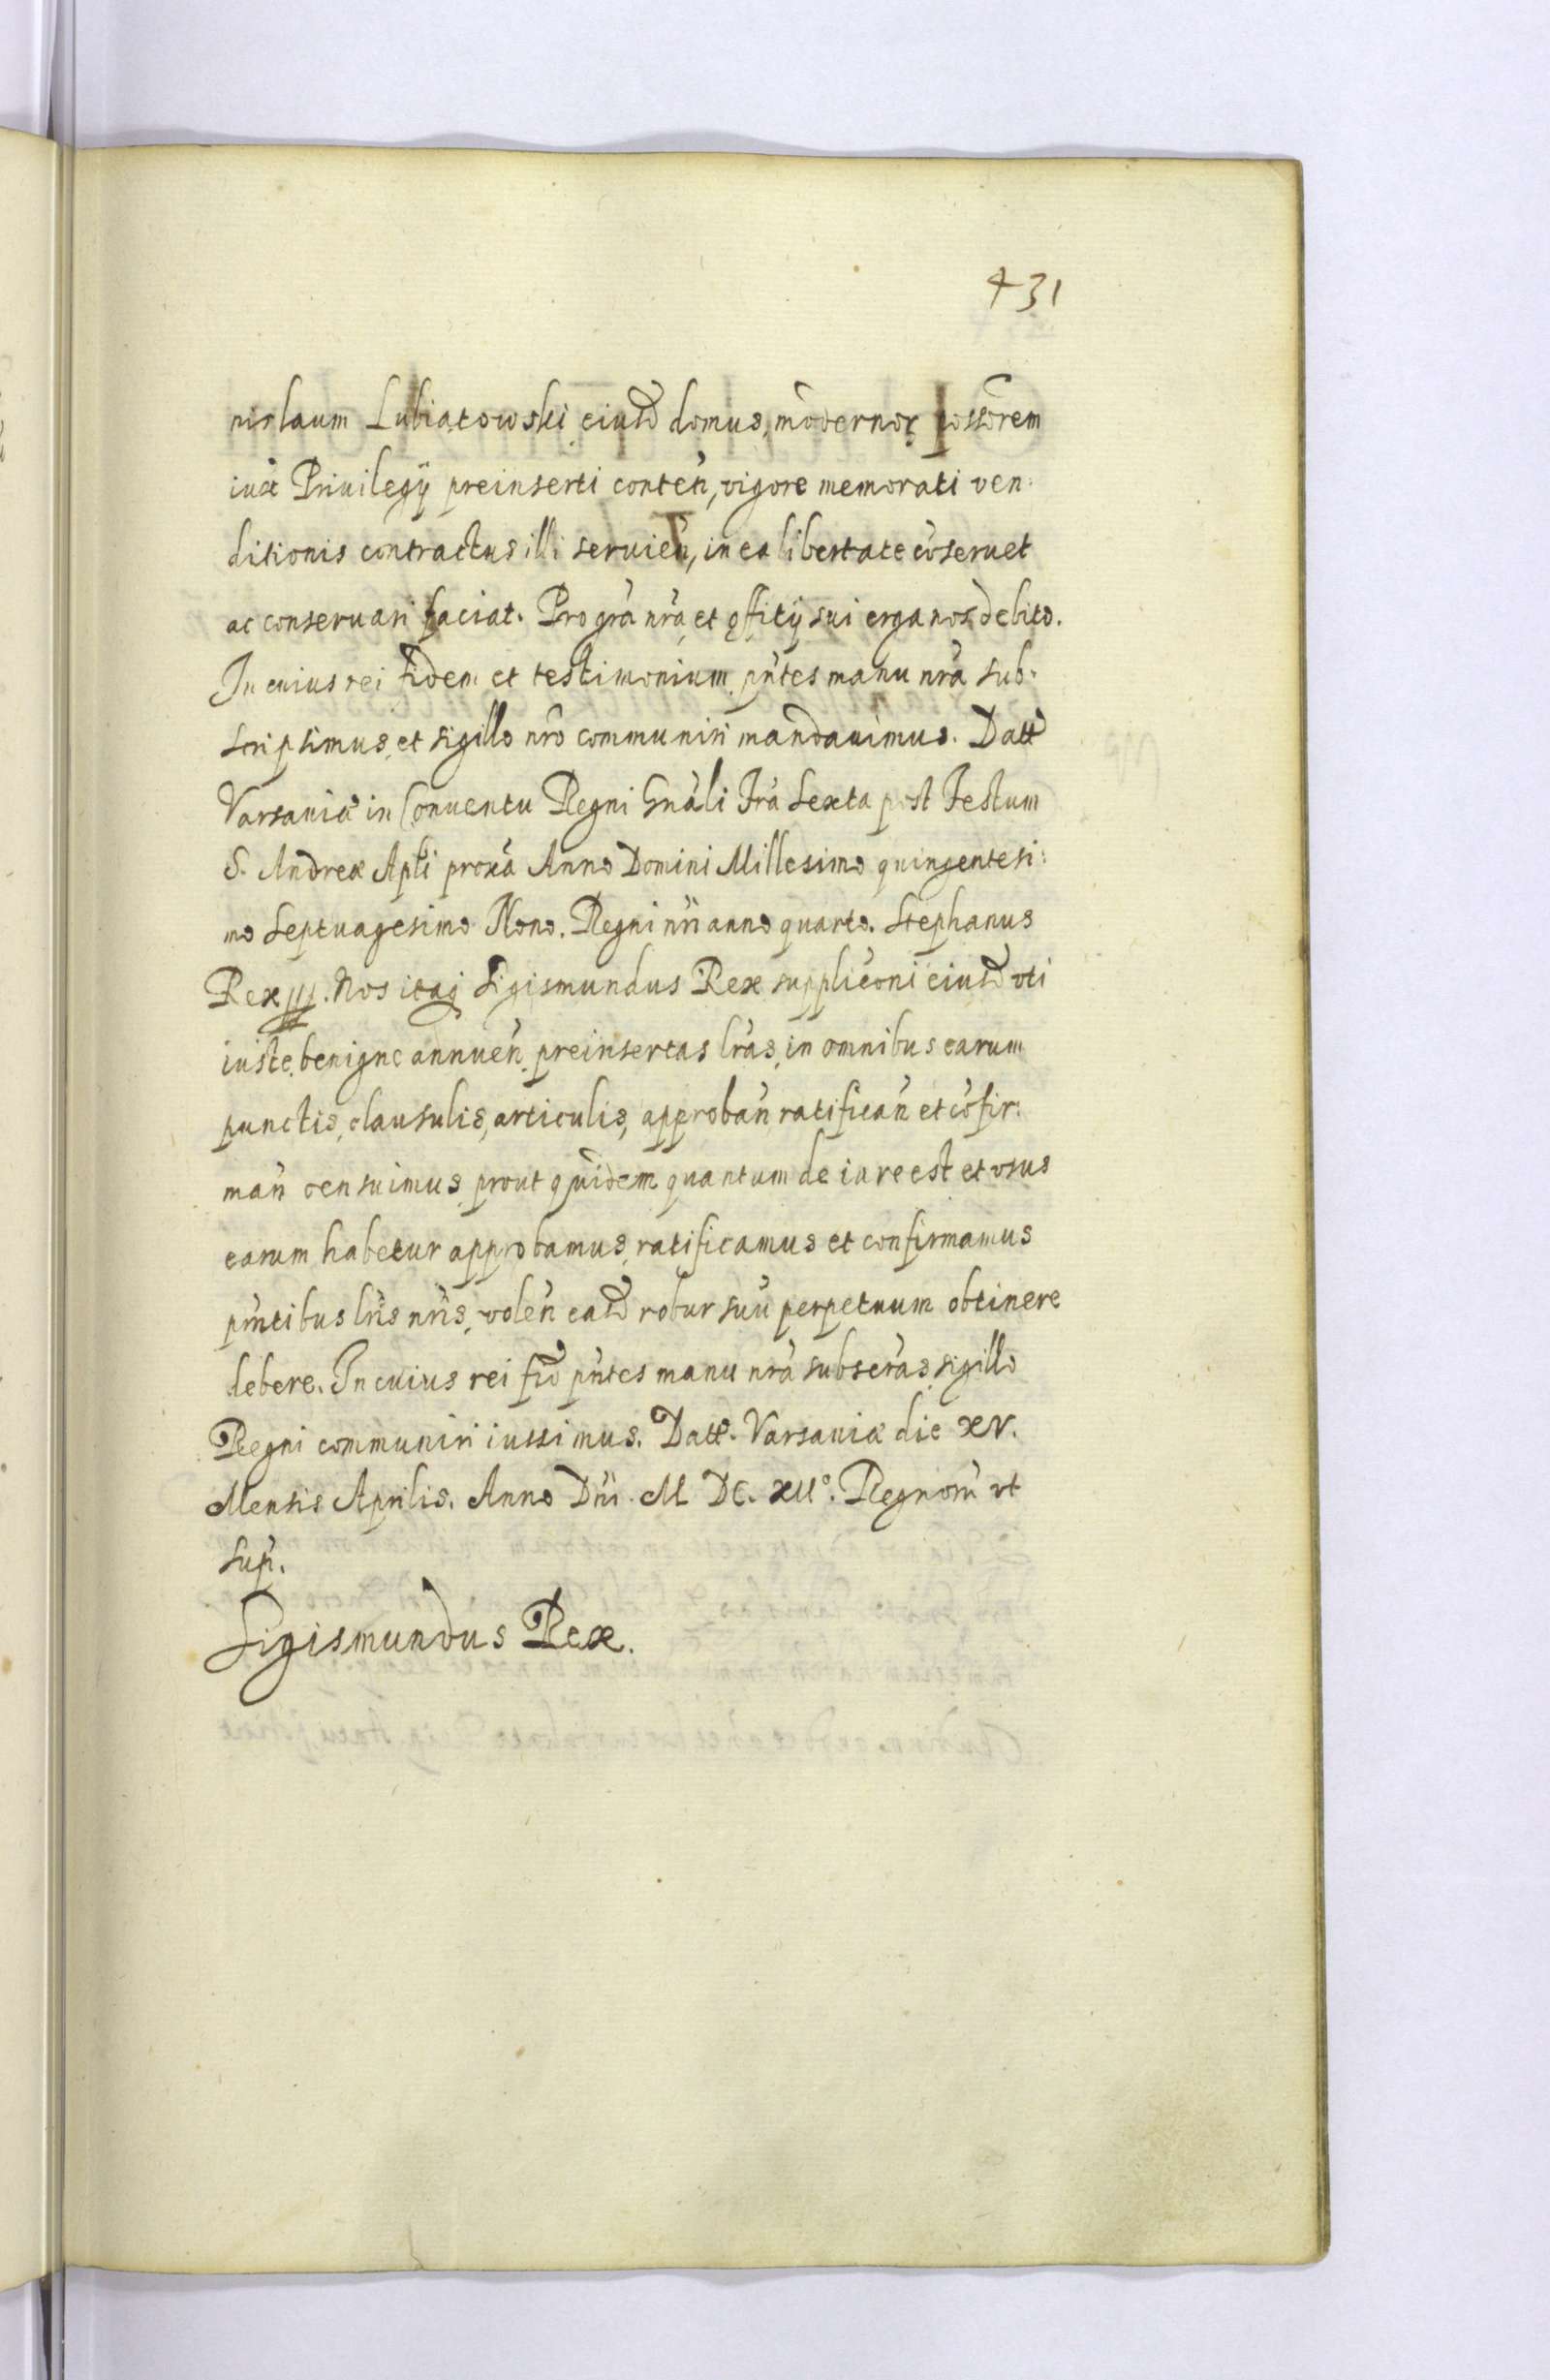 431
nislaum Lubiatowski eiusd domus, modernor possorem
iuxa Priuilegÿ preinserti conteń, vigore memorati ven:
ditionis contractus illi seruień, in ea libertate cōseruet
ac conseruari faciat. Pro gra nra et offitÿ sui erga nos debito.
In cuius rei fidem et testimonium pntes manu nra sub:
scripsimus, et sigillo nro communiri mandauimus. Datt
Varsauiæ in Conuentu Regni Gnali Fra Sexta post Festum
S. Andreæ Apli proxa Anno Domini Millesimo quingentesi:
mo Septuagesimo Nono. Regni nri anno quarto. Stephanus
Rex. Nos itaq Sigismundus Rex suppliconi eiusd vti
iuste, benigne annueń preinsertas lras, in omnibus earum
punctis, clausulis, articulis, approbań ratificań et cōfir:
mań censuimus, prout quidem quantum de iure est et vsus
earum habetur approbamus, ratificamus et confirmamus
pntibus lris nris, voleń easd robur suū perpetuum obtinere
debere. In cuius rei fid pntes manu nra subscras, sigillo
Regni communiri iussimus. Datt. Varsauiæ die XV.
Mensis Aprilis. Anno Dni M DC. XIIº. Regnorū vt
sup.
Sigismundus Rex.